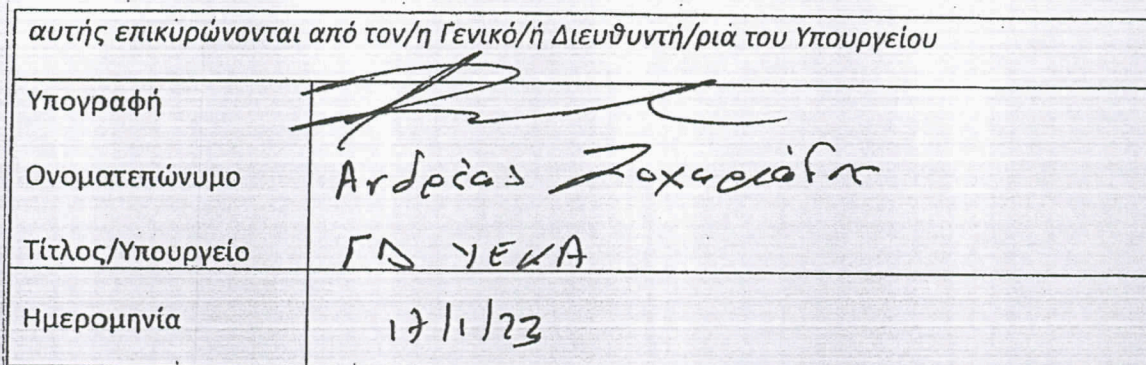 αυτής επικυρώνονται από τον/η Γενικό/ή Διευθυντή/ρια του Υπουργείου
Υπογραφή
Ονοματεπώνυμο Ανδρέας Ζαχαριάδης
Τίτλος/Υπουργείο ΓΔ ΥΕΚΑ
Ημερομηνία 17/1/23